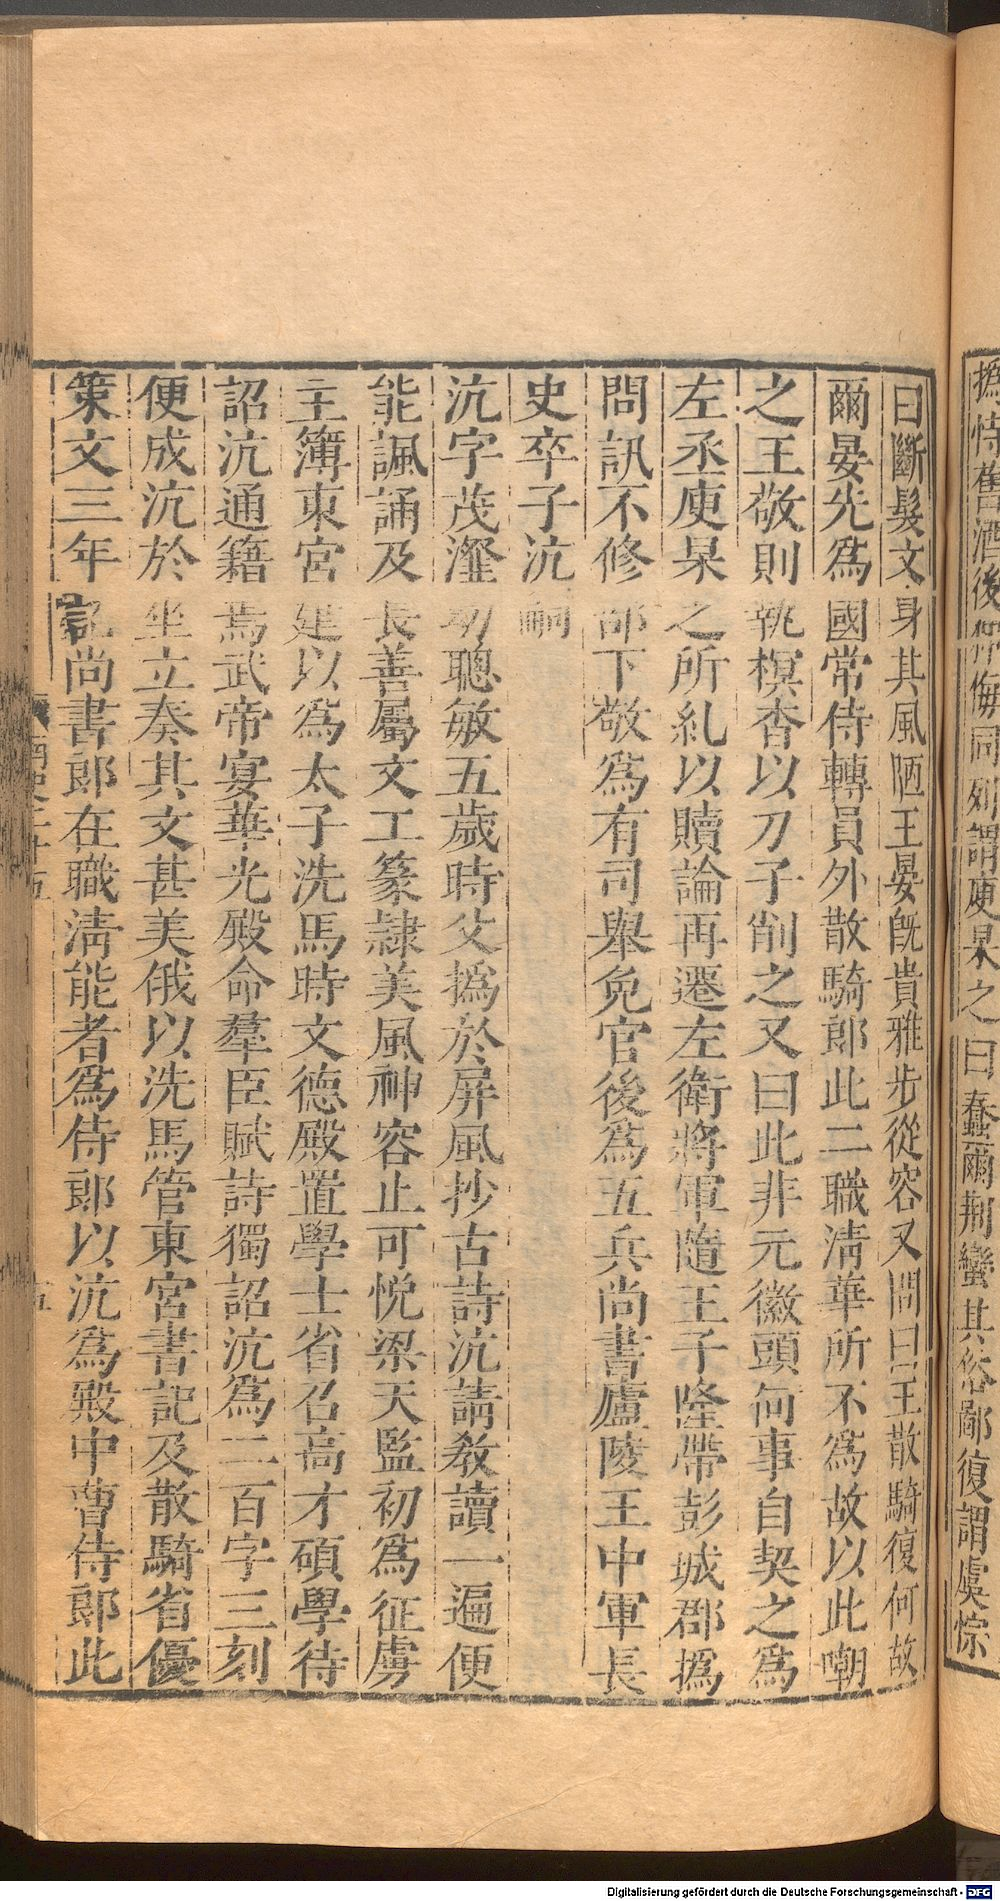 撝恃舊酒後狎侮同列謂庾杲之曰蠢爾荆蠻其俗鄙復謂虞悰
曰斷髮文身其風陋王晏旣貴雅步從容又問曰王散騎復何故
爾晏先爲國常侍轉員外散騎郎此二職淸華所不爲故以此嘲
之王敬則執榠楂以刀子削之又曰此非元徽頭何事自契之爲
左丞庾杲之所糾以贖論再遷左衛將軍隨王子隆帶彭城郡撝
問訊不修部下敬爲有司舉免官後爲五兵尚書廬陵王中軍長
史卒子沆嗣
沆字茂瀅幼聰敏五歲時父撝於屏風抄古詩沆請敎讀一遍便
能諷誦及長善屬文工篆隷美風神容止可悅梁天監初爲征虜
主簿東宮建以爲太子洗馬時文德殿置學士省召高才碩學待
詔沆通籍焉武帝宴華光殿命羣臣賦詩獨詔沆爲二百字三刻
便成沆於坐立奏其文甚美俄以洗馬管東宮書記及散騎省優
策文三年記尚書郎在職淸能者爲侍郎以沆爲殿中曹侍郎此
南史二十五
十五
Digitalisierung gefördert durch die Deutsche Forschungsgemeinschaft - DFG